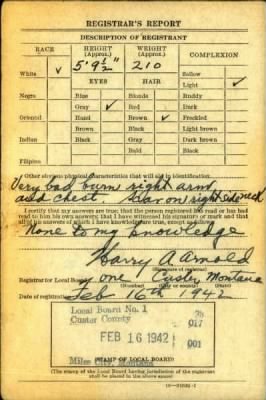 REGISTRAR'S REPORT
DESCRIPTION OF REGISTRANT
RACE HEIGHT (Approx.) WEIGHT (Approx.) COMPLEXION
White ✓ 5' 9½" 210 Sallow
EYES HAIR Light ✓
Negro Blue Blonde Ruddy
Gray ✓ Red Dark
Oriental Hazel Brown ✓ Freckled
Brown Black Light brown
Indian Black Gray Dark brown
Bald Black
Filipino
Other obvious physical characteristics that will aid in identification
Very bad burn right arm
and chest. Scar on right side neck
I certify that my answers are true; that the person registered has read or has had
read to him his own answers; that I have witnessed his signature or mark and that
all of his answers of which I have knowledge are true, except as follows:
None to my knowledge
Harry A Arnold
(Signature of registrar)
Registrar for Local Board one Custer, Montana
Date of registration Feb 16th 1942
Local Board No. 1
Custer County 017
FEB 16 1942 001
Miles City, Montana
(STAMP OF LOCAL BOARD)
(The stamp of the Local Board having jurisdiction of the registrant
shall be placed in the above space)